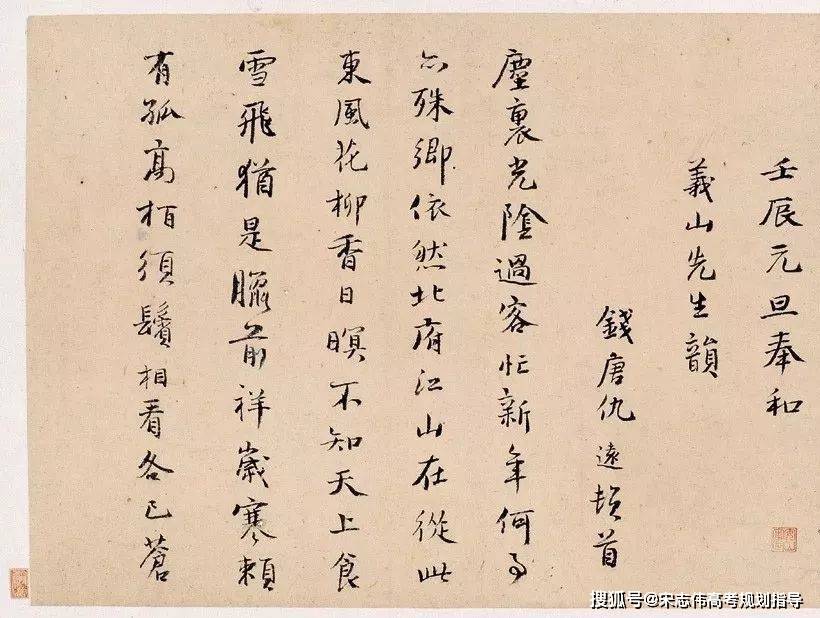 壬辰元旦奉和
義山先生韻
錢唐仇遠頓首
塵裏光陰過客忙新年何事
亦殊鄉依然北府江山在從此
東風花柳香日暝不知天上食
雪飛猶是臘前祥歲寒賴
有孤高栢須鬢相看各已蒼
搜狐号@宋志伟高考规划指导